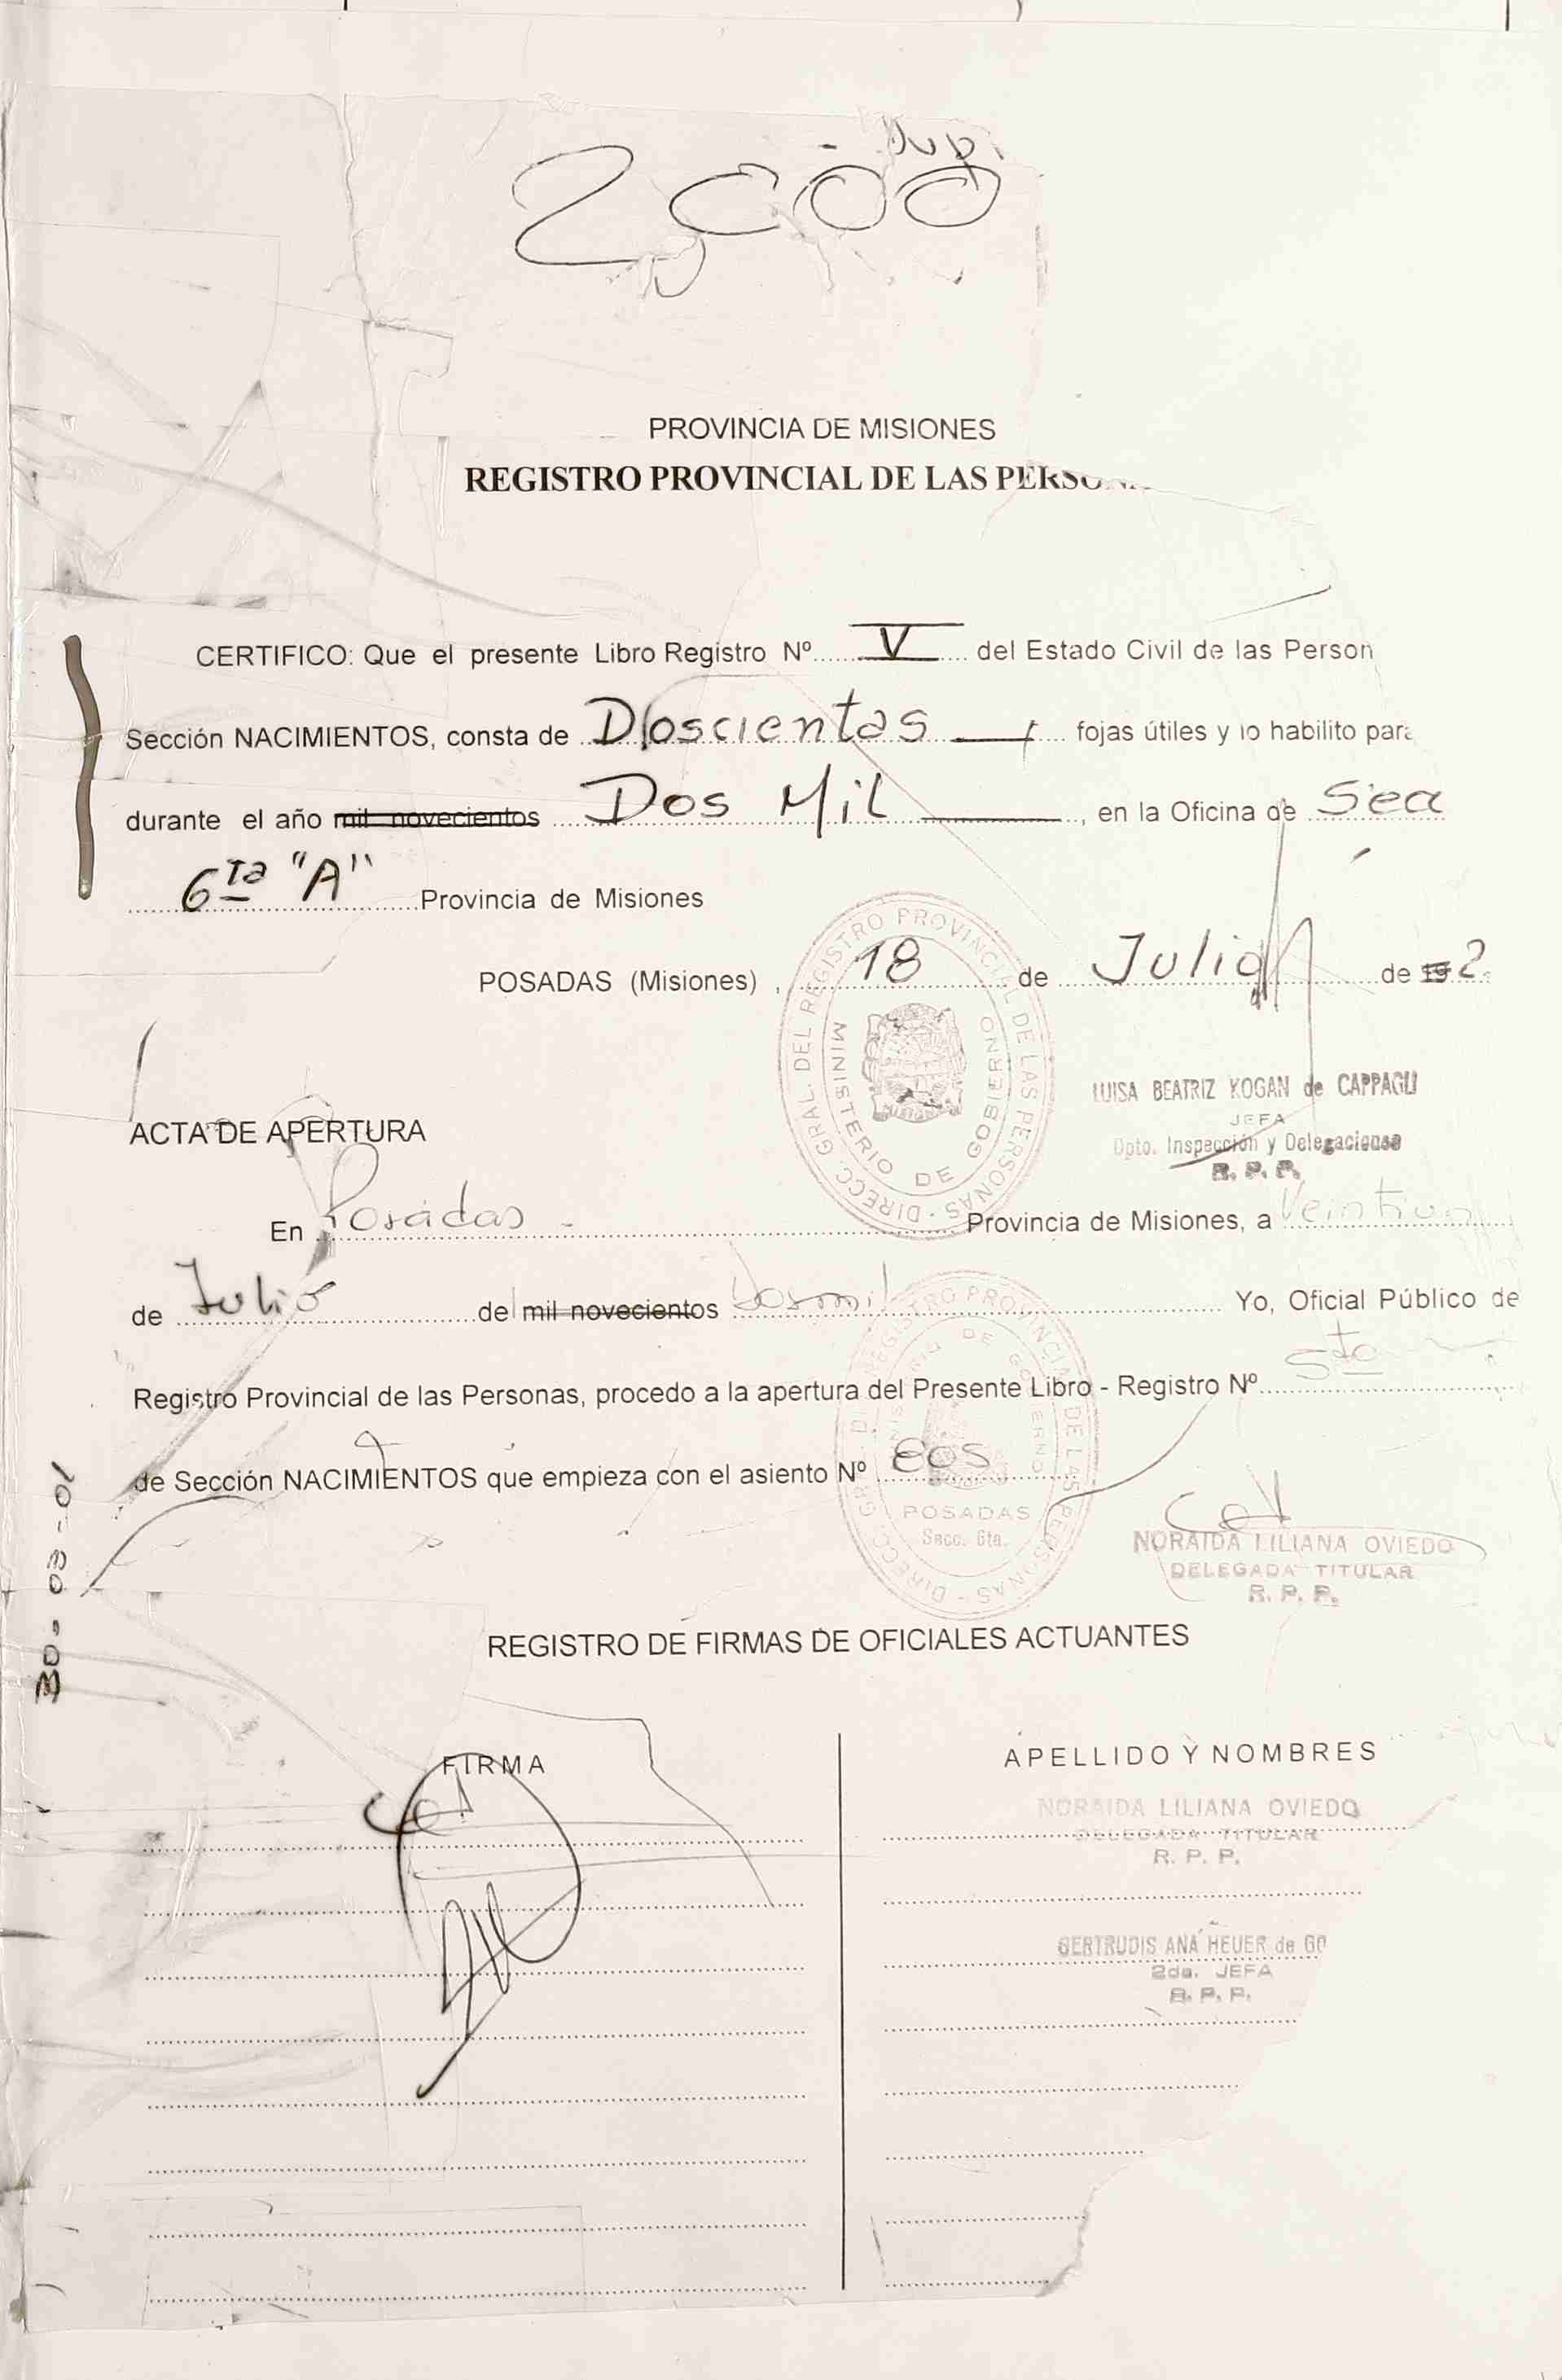 Dup.
2000
PROVINCIA DE MISIONES
REGISTRO PROVINCIAL DE LAS PERSONA
CERTIFICO: Que el presente Libro Registro Nº V del Estado Civil de las Person
Sección NACIMIENTOS, consta de Doscientas fojas útiles y lo habilito para
durante el año mil novecientos Dos Mil, en la Oficina de Sec
6ta "A" Provincia de Misiones
POSADAS (Misiones), 18 de Julio de 19 2
DIRECC. GRAL. DEL REGISTRO PROVINCIAL DE LAS PERSONAS
MINISTERIO DE GOBIERNO
LUISA BEATRIZ KOGAN de CAPPAGLI
JEFA
Dpto. Inspección y Delegaciones
R. P. P.
ACTA DE APERTURA
En Posadas - Provincia de Misiones, a Veintiun
de Julio de mil novecientos dosmil Yo, Oficial Público de
Registro Provincial de las Personas, procedo a la apertura del Presente Libro - Registro Nº 5to
de Sección NACIMIENTOS que empieza con el asiento Nº 805
POSADAS
Secc. 6ta.
NORAIDA LILIANA OVIEDO
DELEGADA TITULAR
R. P. P.
30-03-01
REGISTRO DE FIRMAS DE OFICIALES ACTUANTES
FIRMA
APELLIDO Y NOMBRES
NORAIDA LILIANA OVIEDO
DELEGADA TITULAR
R. P. P.
GERTRUDIS ANA HEUER de GO
2da. JEFA
R. P. P.